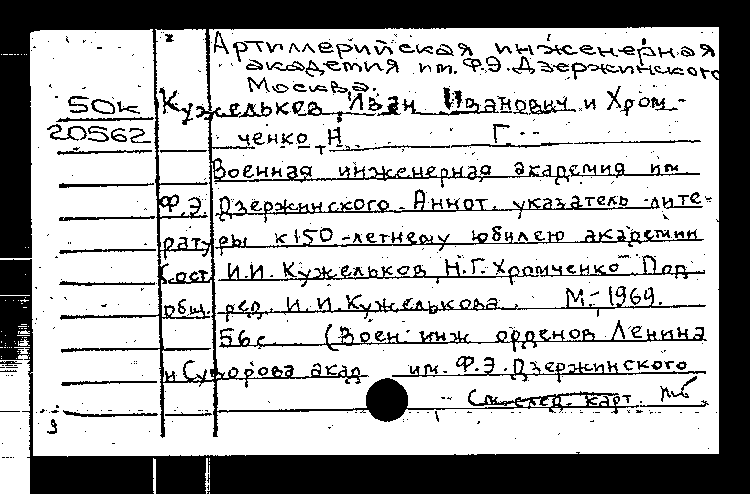 Артиллерийская инженерная
академия им. Ф.Э. Дзержинского
Москва.
50к
20562
Кужельков, Иван Иванович и Хром-
ченко, Н Г.
Военная инженерная академия им
Ф.Э. Дзержинского. Аннот. указатель лите-
ратуры к 150-летнему юбилею академии
Сост И.И. Кужельков, Н.Г. Хромченко Под
общ. ред. И.И. Кужелькова. М., 1969.
56с (Воен. инж орденов Ленина
и Суворова акад им. Ф.Э. Дзержинского
См. след. карт.